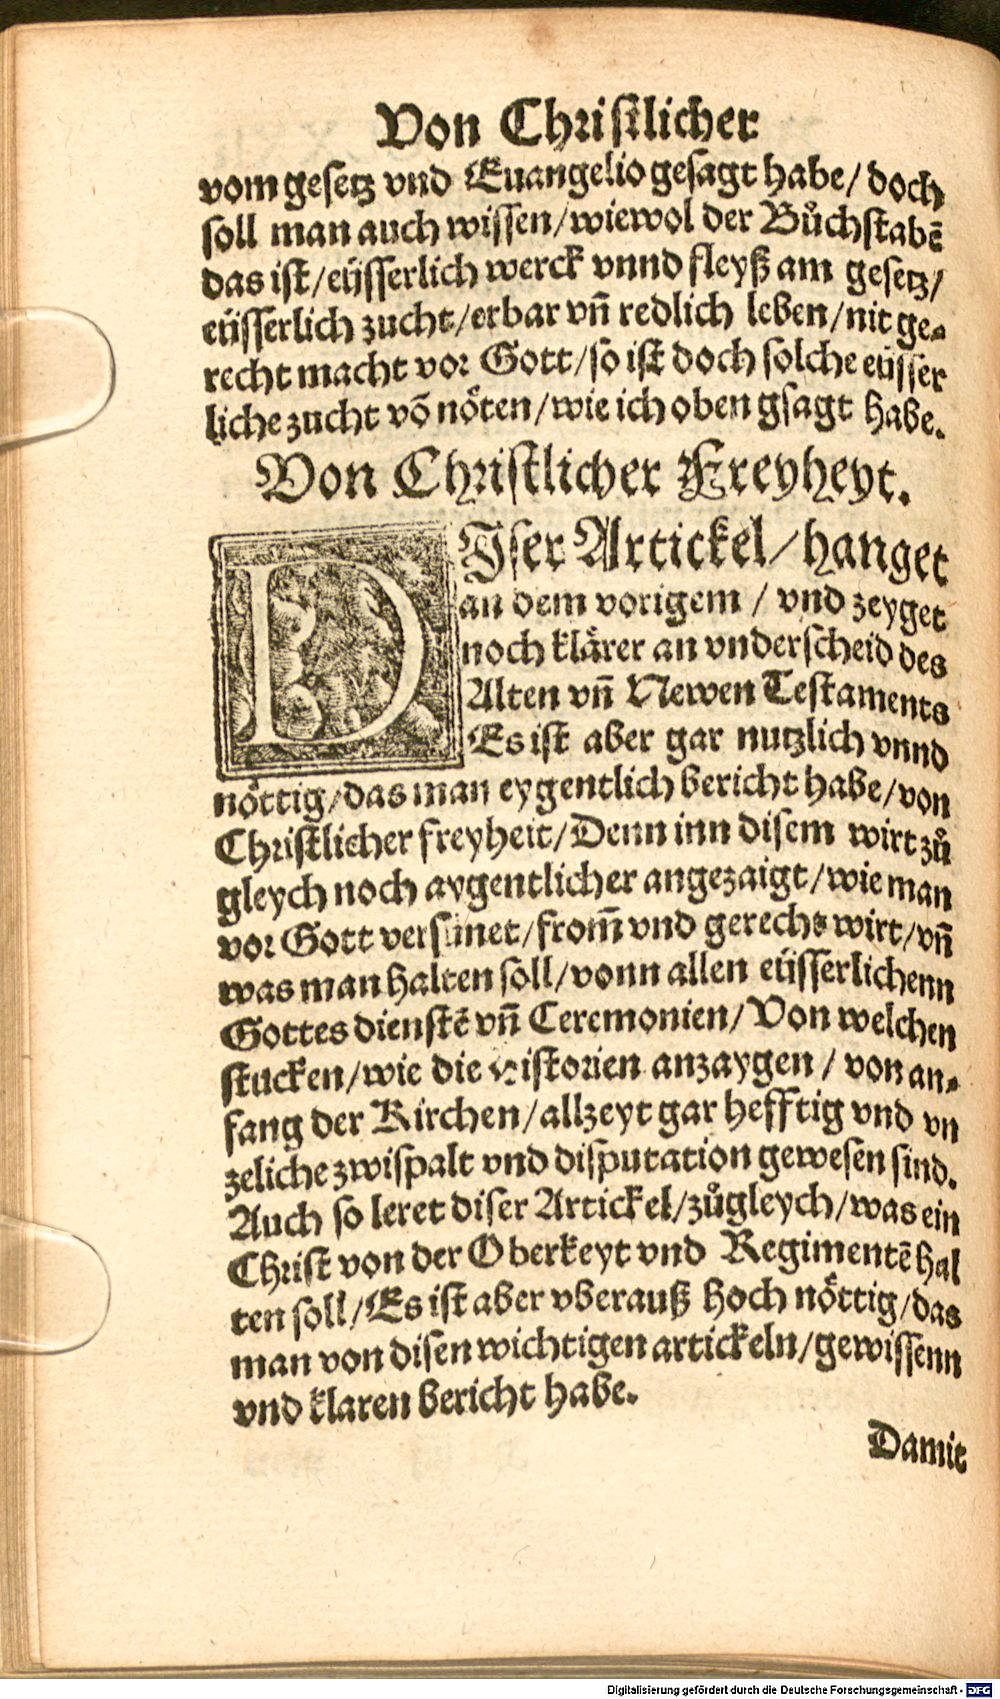 Von Christlicher
vom gesetz vnd Euangelio gesagt habe/ doch
soll man auch wissen/ wiewol der Bůchstabē
das ist/ eüsserlich werck vnnd fleyß am gesetz/
eüsserlich zucht/ erbar vñ redlich leben/ nit ge-
recht macht vor Gott/ so ist doch solche eüsser
liche zucht võ nöten/ wie ich oben gsagt habe.
Von Christlicher Freyheyt.
DIser Artickel/ hanget
an dem vorigem / vnd zeyget
noch klärer an vnderscheid des
Alten vñ Newen Testaments
Es ist aber gar nutzlich vnnd
nöttig/ das man eygentlich bericht habe/ von
Christlicher freyheit/ Denn inn disem wirt zů
gleych noch aygentlicher angezaigt/ wie man
vor Gott versünet/ from̃ vnd gerecht wirt/ vñ
was man halten soll/ vonn allen eüsserlichenn
Gottes dienstē vñ Ceremonien/ Von welchen
stucken/ wie die Historien anzaygen / von an-
fang der Kirchen/ allzeyt gar hefftig vnd vn
zeliche zwispalt vnd disputation gewesen sind.
Auch so leret diser Artickel/ zůgleych/ was ein
Christ von der Oberkeyt vnd Regimentē hal
ten soll/ Es ist aber vberauß hoch nöttig/ das
man von disen wichtigen artickeln/ gewissenn
vnd klaren bericht habe.
Damit
Digitalisierung gefördert durch die Deutsche Forschungsgemeinschaft - DFG